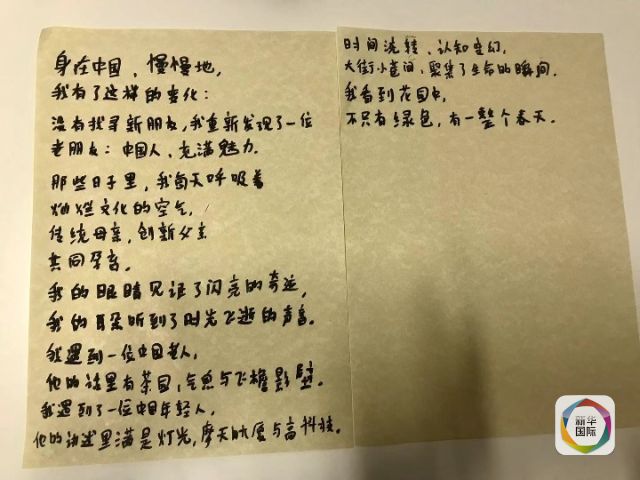 身在中国，慢慢地，
我有了这样的变化：
没有找寻新朋友，我重新发现了一位
老朋友：中国人，充满魅力.
那些日子里，我每天呼吸着
灿烂文化的空气，
传统母亲，创新父亲
共同孕育。
我的眼睛见证了闪亮的奇迹，
我的耳朵听到了时光飞逝的声音。
我遇到一位中国老人，
他的话里有茶园，气息与飞檐影壁。
我遇到了一位中国年轻人，
他的讲述里满是灯光，摩天大厦与高科技。
时间流转、认知变幻，
大街小巷间，聚集了生命的瞬间.
我看到花园中，
不只有绿色，有一整个春天.
新华
国际